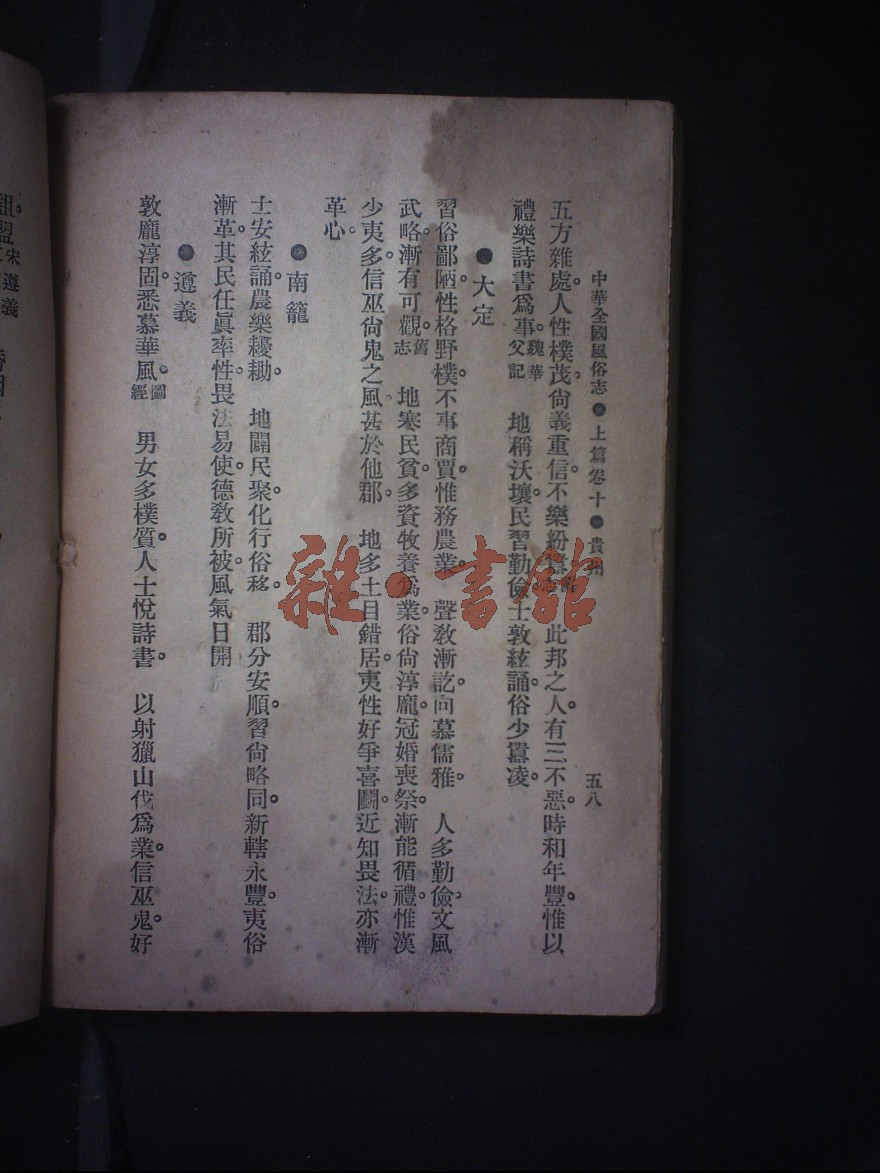 中華全國風俗志●上篇卷十●貴州 五八
五方雜處。人性樸茂。尙義重信。不樂紛 此邦之人。有三不惡。時和年豐。惟以
禮樂詩書爲事。魏華父記 地稱沃壤。民習勤儉。士敦絃誦。俗少囂凌。
●大定
習俗鄙陋。性格野樸。不事商賈。惟務農業。 聲敎漸訖。向慕儒雅。 人多勤儉。文風
武略。漸有可觀。舊志 地寒民貧。多資牧養爲業。俗尙淳龐。冠婚喪祭。漸能循禮。惟漢
少夷多。信巫尙鬼之風。甚於他郡。 地多土目錯居。夷性好爭喜鬭。近知畏法。亦漸
革心。
●南籠
士安絃誦。農樂耰耡。 地闢民聚。化行俗移。 郡分安順。習尙略同。新轄永豐。夷俗
漸革。其民任眞率性。畏法易使。德敎所被。風氣日開
●遵義
敦龐淳固。悉慕華風。圖經 男女多樸質。人士悅詩書。 以射獵山伐爲業。信巫鬼。好
詛盟。宋 遵義
雜·書館